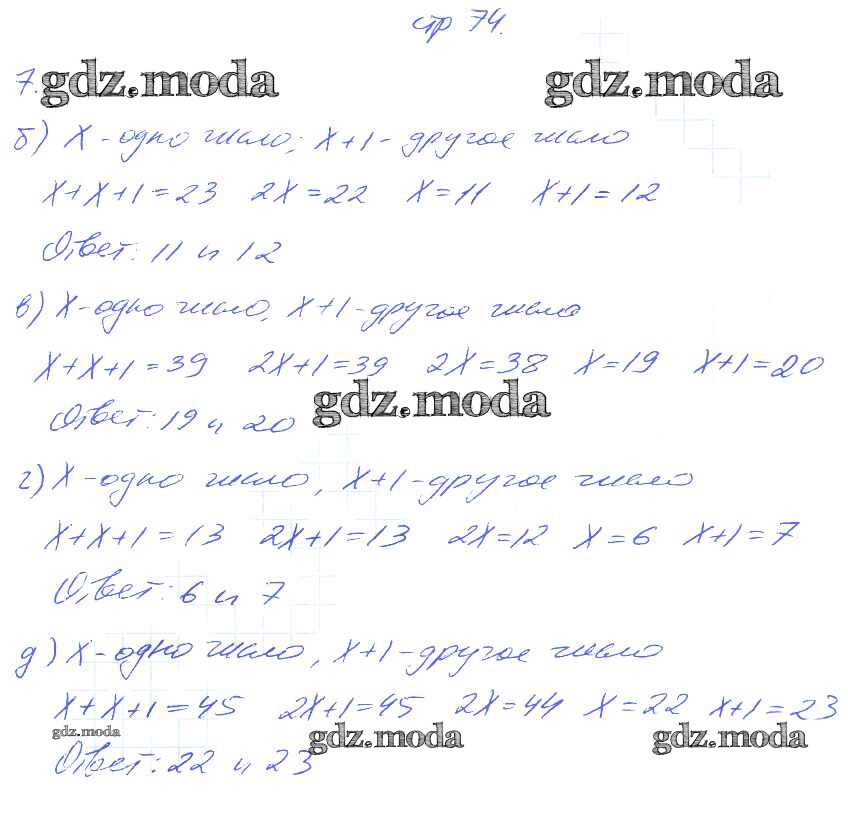 стр 74.
7. gdz.moda gdz.moda
б) x - одно число; x+1 - другое число
x+x+1=23 2x=22 x=11 x+1=12
Ответ: 11 и 12
в) x - одно число, x+1 - другое число
x+x+1=39 2x+1=39 2x=38 x=19 x+1=20
gdz.moda
Ответ: 19 и 20
г) x - одно число, x+1 - другое число
x+x+1=13 2x+1=13 2x=12 x=6 x+1=7
Ответ: 6 и 7
д) x - одно число, x+1 - другое число
x+x+1=45 2x+1=45 2x=44 x=22 x+1=23
gdz.moda gdz.moda gdz.moda
Ответ: 22 и 23